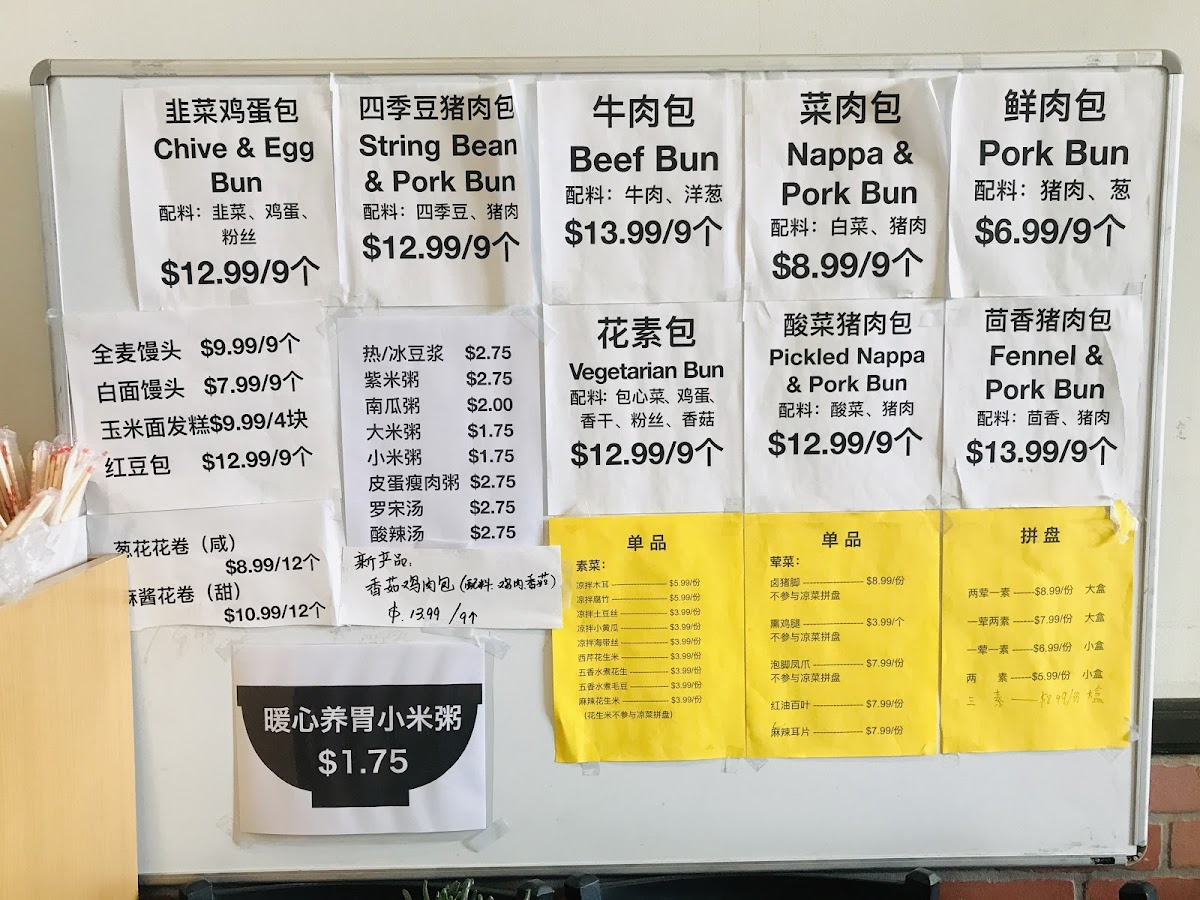 韭菜鸡蛋包
Chive & Egg
Bun
配料：韭菜、鸡蛋、
粉丝
$12.99/9个
四季豆猪肉包
String Bean
& Pork Bun
配料：四季豆、猪肉
$12.99/9个
牛肉包
Beef Bun
配料：牛肉、洋葱
$13.99/9个
菜肉包
Nappa &
Pork Bun
配料：白菜、猪肉
$8.99/9个
鲜肉包
Pork Bun
配料：猪肉、葱
$6.99/9个
全麦馒头 $9.99/9个
白面馒头 $7.99/9个
玉米面发糕$9.99/4块
红豆包 $12.99/9个
热/冰豆浆 $2.75
紫米粥 $2.75
南瓜粥 $2.00
大米粥 $1.75
小米粥 $1.75
皮蛋瘦肉粥 $2.75
罗宋汤 $2.75
酸辣汤 $2.75
花素包
Vegetarian Bun
配料：包心菜、鸡蛋、
香干、粉丝、香菇
$12.99/9个
酸菜猪肉包
Pickled Nappa
& Pork Bun
配料：酸菜、猪肉
$12.99/9个
茴香猪肉包
Fennel &
Pork Bun
配料：茴香、猪肉
$13.99/9个
葱花花卷（咸）
$8.99/12个
麻酱花卷（甜）
$10.99/12个
新产品：
香菇鸡肉包（配料：鸡肉香菇）
$.13.99 /9个
单品
素菜：
凉拌木耳 $5.99/份
凉拌腐竹 $5.99/份
凉拌土豆丝 $3.99/份
凉拌小黄瓜 $3.99/份
凉拌海带丝 $3.99/份
西芹花生米 $3.99/份
五香水煮花生 $3.99/份
五香水煮毛豆 $3.99/份
麻辣花生米 $3.99/份
(花生米不参与凉菜拼盘)
单品
荤菜：
卤猪脚 $8.99/份
不参与凉菜拼盘
熏鸡腿 $3.99/个
不参与凉菜拼盘
泡脚凤爪 $7.99/份
不参与凉菜拼盘
红油百叶 $7.99/份
麻辣耳片 $7.99/份
拼盘
两荤一素 $8.99/份 大盒
一荤两素 $7.99/份 大盒
一荤一素 $6.99/份 小盒
两 素 $5.99/份 小盒
三 素 $8.99/份 大盒
暖心养胃小米粥
$1.75